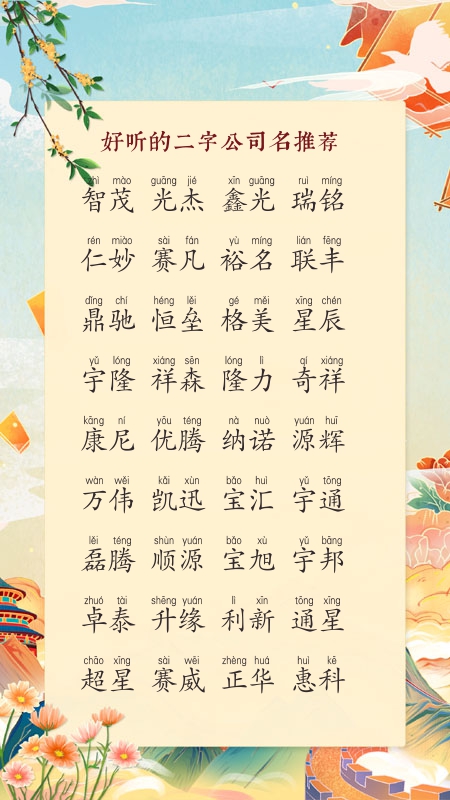 好听的二字公司名推荐
zhì mào guāng jié xīn guāng ruì míng
智茂 光杰 鑫光 瑞铭
rén miào sài fán yù míng lián fēng
仁妙 赛凡 裕名 联丰
dǐng chí héng lěi gé měi xīng chén
鼎驰 恒垒 格美 星辰
yǔ lóng xiáng sēn lóng lì qí xiáng
宇隆 祥森 隆力 奇祥
kāng ní yōu téng nà nuò yuán huī
康尼 优腾 纳诺 源辉
wàn wěi kǎi xùn bǎo huì yǔ tōng
万伟 凯迅 宝汇 宇通
lěi téng shùn yuán bǎo xù yǔ bāng
磊腾 顺源 宝旭 宇邦
zhuó tài shēng yuán lì xīn tōng xīng
卓泰 升缘 利新 通星
chāo xīng sài wēi zhèng huá huì kē
超星 赛威 正华 惠科